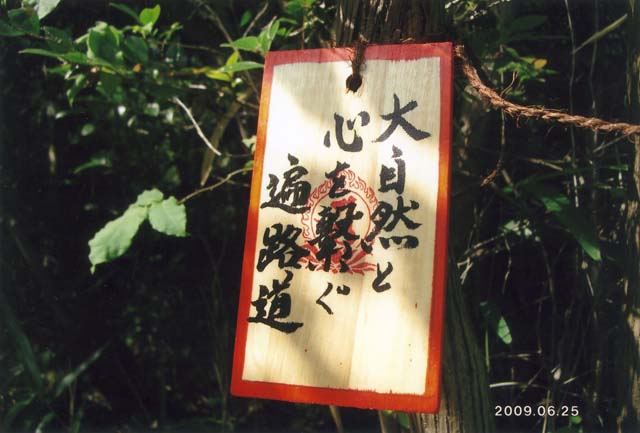 大自然と
心を繋ぐ
遍路道
2009.06.25